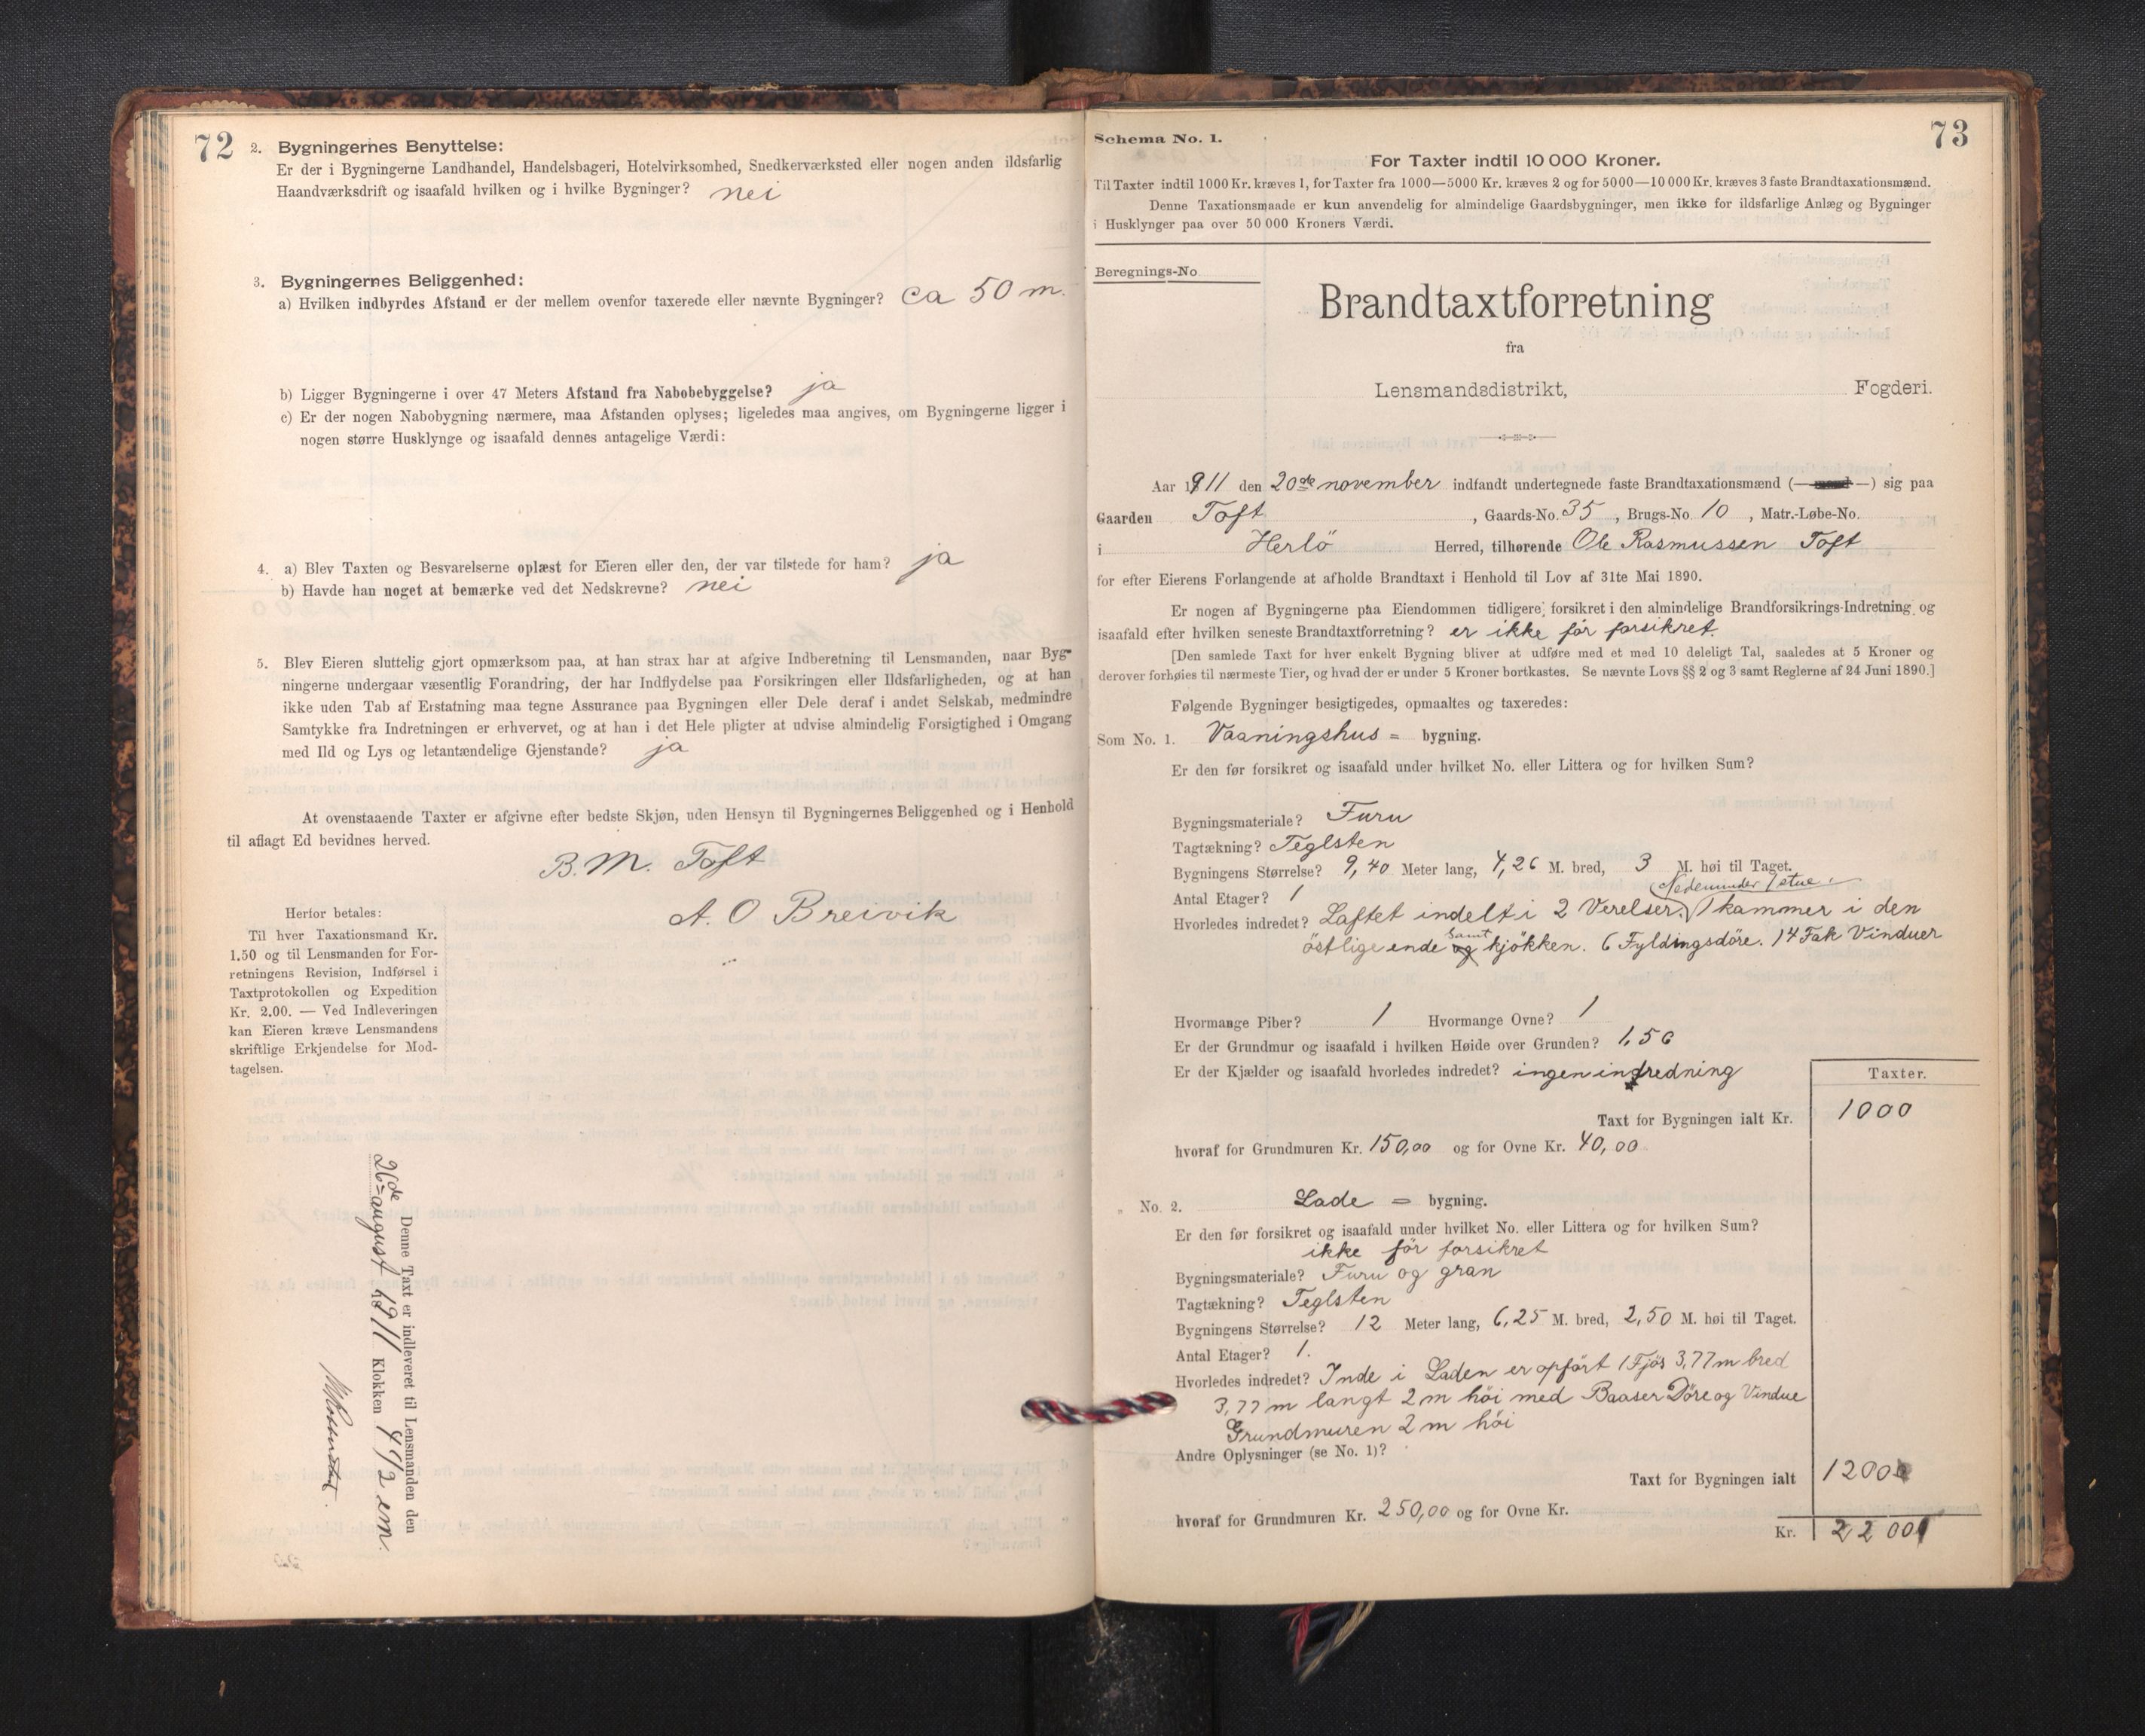 72
2. Bygningernes Benyttelse:
Er der i Bygningerne Landhandel, Handelsbageri, Hotelvirksomhed, Snedkerværksted eller nogen anden ildsfarlig
Haandværksdrift og isaafald hvilken og i hvilke Bygninger? nei
3. Bygningernes Beliggenhed:
a) Hvilken indbyrdes Afstand er der mellem ovenfor taxerede eller nævnte Bygninger? ca 50 m.
b) Ligger Bygningerne i over 47 Meters Afstand fra Nabobebyggelse? ja
c) Er der nogen Nabobygning nærmere, maa Afstanden oplyses; ligeledes maa angives, om Bygningerne ligger i
nogen større Husklynge og isaafald dennes antagelige Værdi:
4. a) Blev Taxten og Besvarelserne oplæst for Eieren eller den, der var tilstede for ham? ja
b) Havde han noget at bemærke ved det Nedskrevne? nei
5. Blev Eieren sluttelig gjort opmærksom paa, at han strax har at afgive Indberetning til Lensmanden, naar Byg-
ningerne undergaar væsentlig Forandring, der har Indflydelse paa Forsikringen eller Ildsfarligheden, og at han
ikke uden Tab af Erstatning maa tegne Assurance paa Bygningen eller Dele deraf i andet Selskab, medmindre
Samtykke fra Indretningen er erhvervet, og at han i det Hele pligter at udvise almindelig Forsigtighed i Omgang
med Ild og Lys og letantændelige Gjenstande? ja
At ovenstaaende Taxter er afgivne efter bedste Skjøn, uden Hensyn til Bygningernes Beliggenhed og i Henhold
til aflagt Ed bevidnes herved.
B. M. Toft
A. O Breivik
Herfor betales:
Til hver Taxationsmand Kr.
1.50 og til Lensmanden for For-
retningens Revision, Indførsel i
Taxtprotokollen og Expedition
Kr. 2.00. — Ved Indleveringen
kan Eieren kræve Lensmandens
skriftlige Erkjendelse for Mod-
tagelsen.
Denne Taxt er indleveret til Lensmanden den
26de august 1911 Klokken 4 1/2 em.
73
Schema No. 1.
For Taxter indtil 10 000 Kroner.
Til Taxter indtil 1000 Kr. kræves 1, for Taxter fra 1000—5000 Kr. kræves 2 og for 5000—10 000 Kr. kræves 3 faste Brandtaxationsmænd.
Denne Taxationsmaade er kun anvendelig for almindelige Gaardsbygninger, men ikke for ildsfarlige Anlæg og Bygninger
i Husklynger paa over 50 000 Kroners Værdi.
Beregnings-No
Brandtaxtforretning
fra
Lensmandsdistrikt, Fogderi.
Aar 1911 den 20de november indfandt undertegnede faste Brandtaxationsmænd (— mand —) sig paa
Gaarden Toft, Gaards-No. 35, Brugs-No. 10, Matr.-Løbe-No.
i Herlö Herred, tilhørende Ole Rasmussen Toft
for efter Eierens Forlangende at afholde Brandtaxt i Henhold til Lov af 31te Mai 1890.
Er nogen af Bygningerne paa Eiendommen tidligere forsikret i den almindelige Brandforsikrings-Indretning og
isaafald efter hvilken seneste Brandtaxtforretning? er ikke för forsikret.
[Den samlede Taxt for hver enkelt Bygning bliver at udføre med et med 10 deleligt Tal, saaledes at 5 Kroner og
derover forhøies til nærmeste Tier, og hvad der er under 5 Kroner bortkastes. Se nævnte Lovs §§ 2 og 3 samt Reglerne af 24 Juni 1890.]
Følgende Bygninger besigtigedes, opmaaltes og taxeredes:
Som No. 1. Vaaningshus = bygning.
Er den før forsikret og isaafald under hvilket No. eller Littera og for hvilken Sum?
Bygningsmateriale? Furu
Tagtækning? Teglsten
Bygningens Størrelse? 9,40 Meter lang, 4,26 M. bred, 3 M. høi til Taget.
Antal Etager? 1
Nedenunder 1 stue.
Hvorledes indredet? Loftet indelt i 2 Verelser. 1 kammer i den
östlige ende og samt kjökken. 6 Fyldingsdöre. 14 Fak Vinduer
Hvormange Piber? 1 Hvormange Ovne? 1
Er der Grundmur og isaafald i hvilken Høide over Grunden? 1,56
Er der Kjælder og isaafald hvorledes indredet? ingen indredning
Taxter.
Taxt for Bygningen ialt Kr. 1000
hvoraf for Grundmuren Kr. 150,00 og for Ovne Kr. 40,00
„ No. 2. Lade = bygning.
Er den før forsikret og isaafald under hvilket No. eller Littera og for hvilken Sum?
ikke för forsikret
Bygningsmateriale? Furu og gran
Tagtækning? Teglsten
Bygningens Størrelse? 12 Meter lang, 6,25 M. bred, 2,50 M. høi til Taget.
Antal Etager? 1.
Hvorledes indredet? Inde i Laden er opfört 1 Fjös 3,77 m bred
3,77 m langt 2 m höi med Baaser Döre og Vindue
Grundmuren 2 m höi
Andre Oplysninger (se No. 1)?
Taxt for Bygningen ialt 1200
hvoraf for Grundmuren Kr. 250,00 og for Ovne Kr.
Kr. 2200